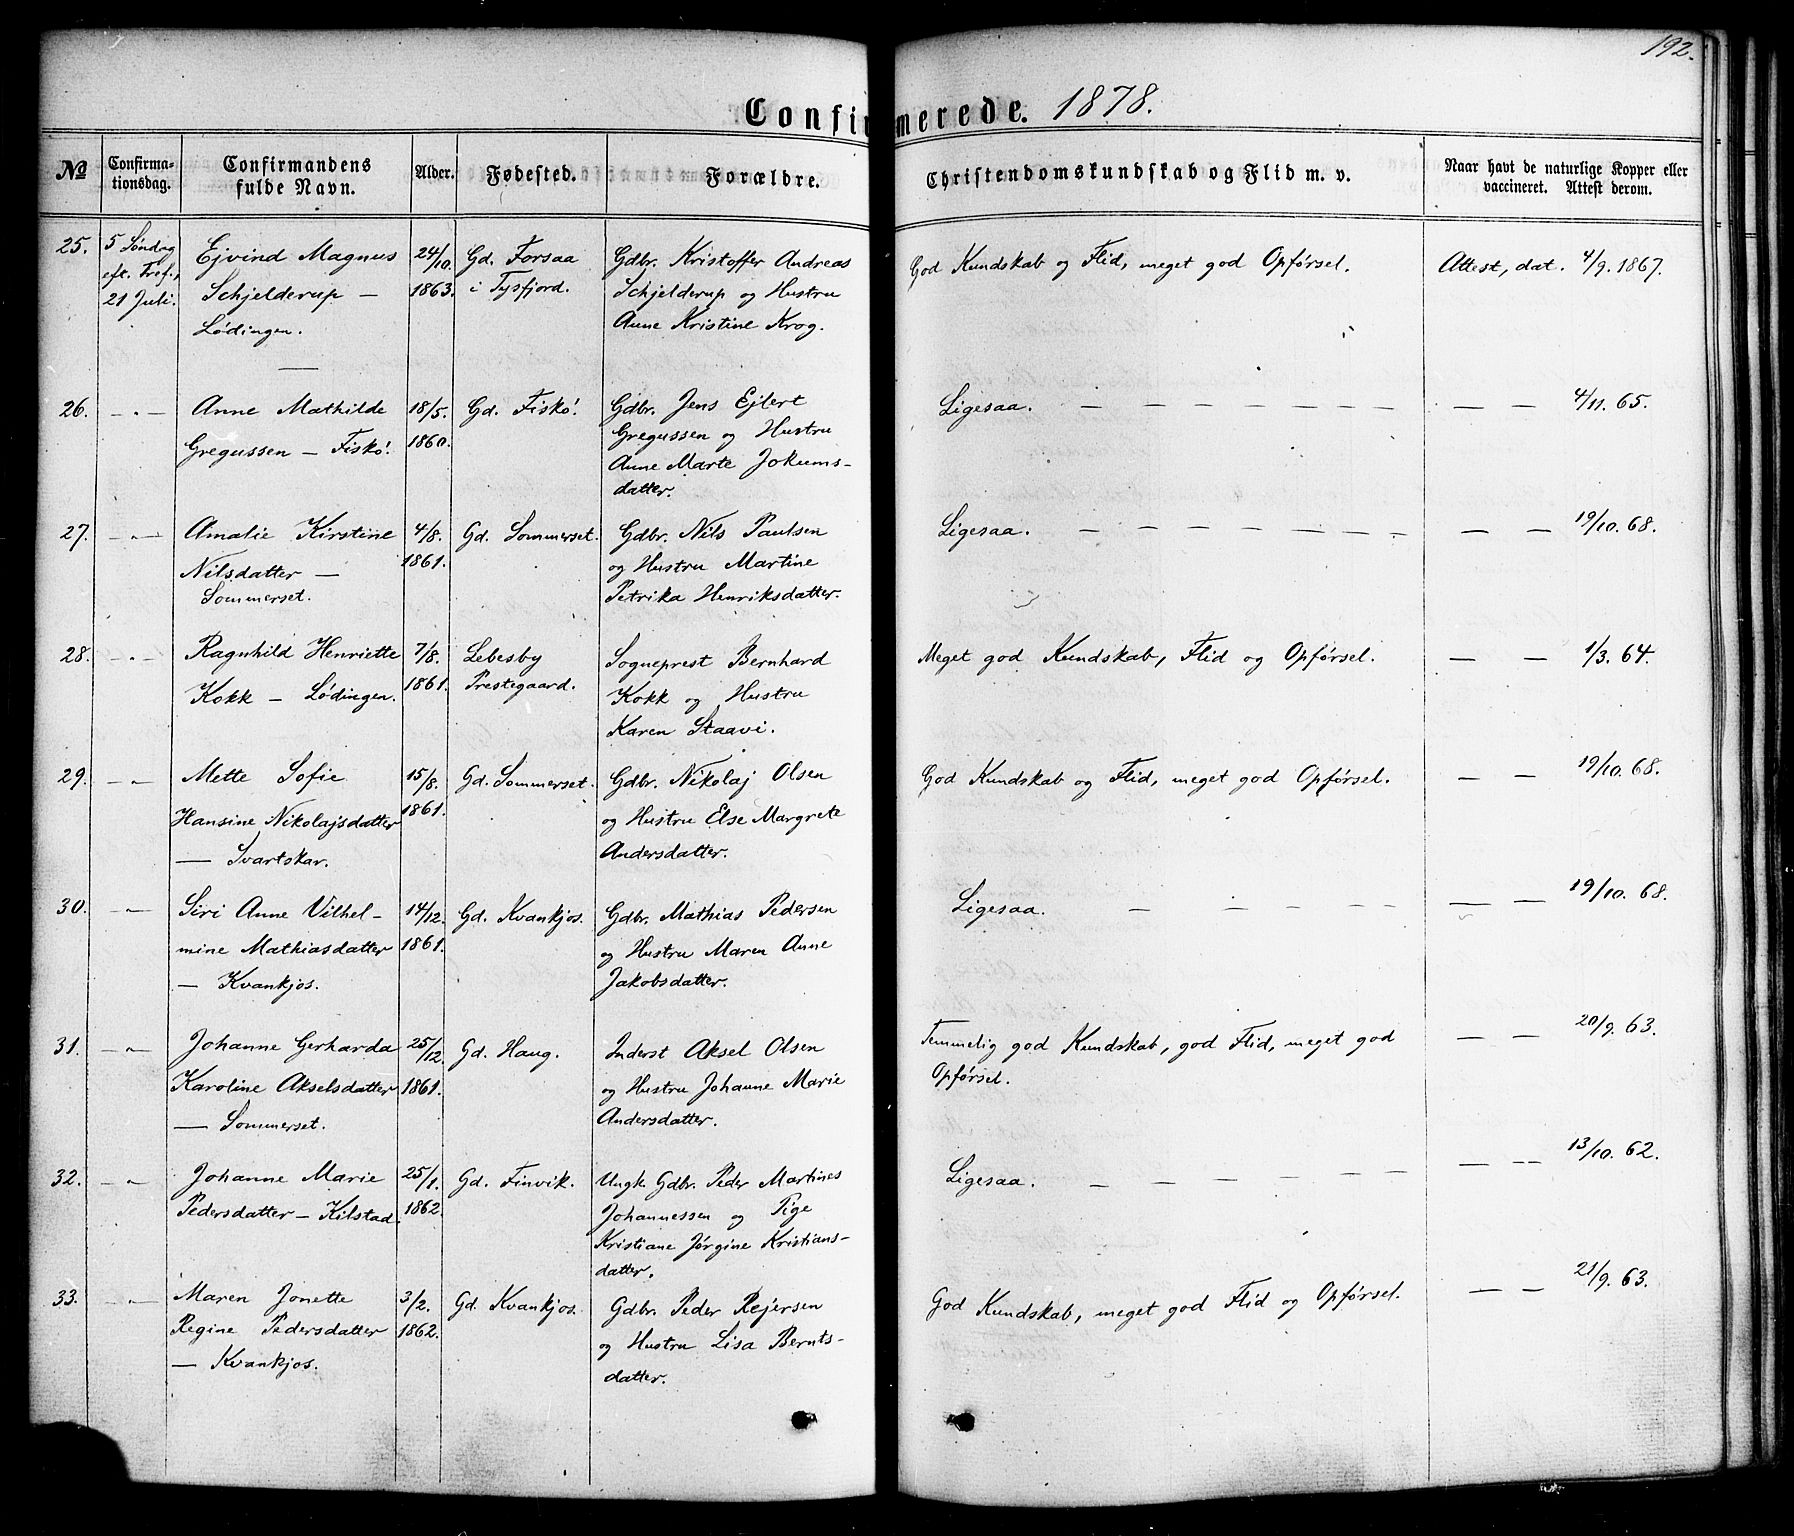 192.
Confirmerede. 1878.
No Confirmationsdag. Confirmandens fulde Navn. Alder. Fødested. Forældre. Christendomskundskab og Flid m. v. Naar havt de naturlige Kopper eller vaccineret. Attest derom.
25. 5 Søndag Ejvind Magnus 24/10. Gd. Forsaa Gdbr. Kristoffer Andreas God Kundskab og Flid, meget god Opførsel. Attest, dat. 4/9. 1867.
eft. Tref., Schjelderup — 1863. i Tysfjord. Schjelderup og Hustru
21 Juli. Lødingen. Anne Kristine Krog.
26. — „ — Anne Mathilde 18/5. Gd. Fiskø. Gdbr. Jens Ejlert Ligesaa. — — — — — — — — — 4/11. 65.
Gregussen — Fiskø. 1860. Gregussen og Hustru
Anne Marte Jokums-
datter.
27. — „ — Amalie Kirstine 4/8. Gd. Sommerset. Gdbr. Nils Paulsen Ligesaa. — — — — — — — — — — 19/10. 68.
Nilsdatter — 1861. og Hustru Martine
Sommerset. Petrika Henriksdatter.
28. — „ — Ragnhild Henriette 7/8. Lebesby Sogneprest Bernhard Meget god Kundskab, Flid og Opførsel. — — 1/3. 64.
Kokk — Lødingen. 1861. Prestegaard. Kokk og Hustru
Karen Staavi.
29. — „ Mette Sofie 15/8. Gd. Sommerset. Gdbr. Nikolaj Olsen God Kundskab og Flid, meget god Opførsel. — — 19/10. 68.
Hansine Nikolajsdatter 1861. og Hustru Else Margrete
— Svartskar. Andersdatter.
30. — „ Siri Anne Vilhel- 14/12. Gd. Kvankjos. Gdbr. Mathias Pedersen Ligesaa. — — — — — — — — 19/10. 68.
mine Mathiasdatter 1861. og Hustru Maren Anne
— Kvankjos. Jakobsdatter.
31. — „ Johanne Gerharda 25/12. Gd. Haug. Inderst Aksel Olsen Temmelig god Kundskab, god Flid, meget god — — 20/9. 63.
Karoline Akselsdatter 1861. og Hustru Johanne Marie Opførsel.
— Sommerset. Andersdatter.
32. — „ Johanne Marie 25/1. Gd. Finvik. Ungk. Gdbr. Peder Martines Ligesaa. — — — — — — — — — 13/10. 62.
Pedersdatter — Kilstad. 1862. Johannessen og Pige
Kristiane Jørgine Kristians-
datter.
33. — „ Maren Jonette 3/2. Gd. Kvankjos. Gdbr. Peder Rejersen God Kundskab, meget god Flid og Opførsel. — — 21/9. 63.
Regine Pedersdatter 1862. og Hustru Lisa Bernts-
— Kvankjos. datter.